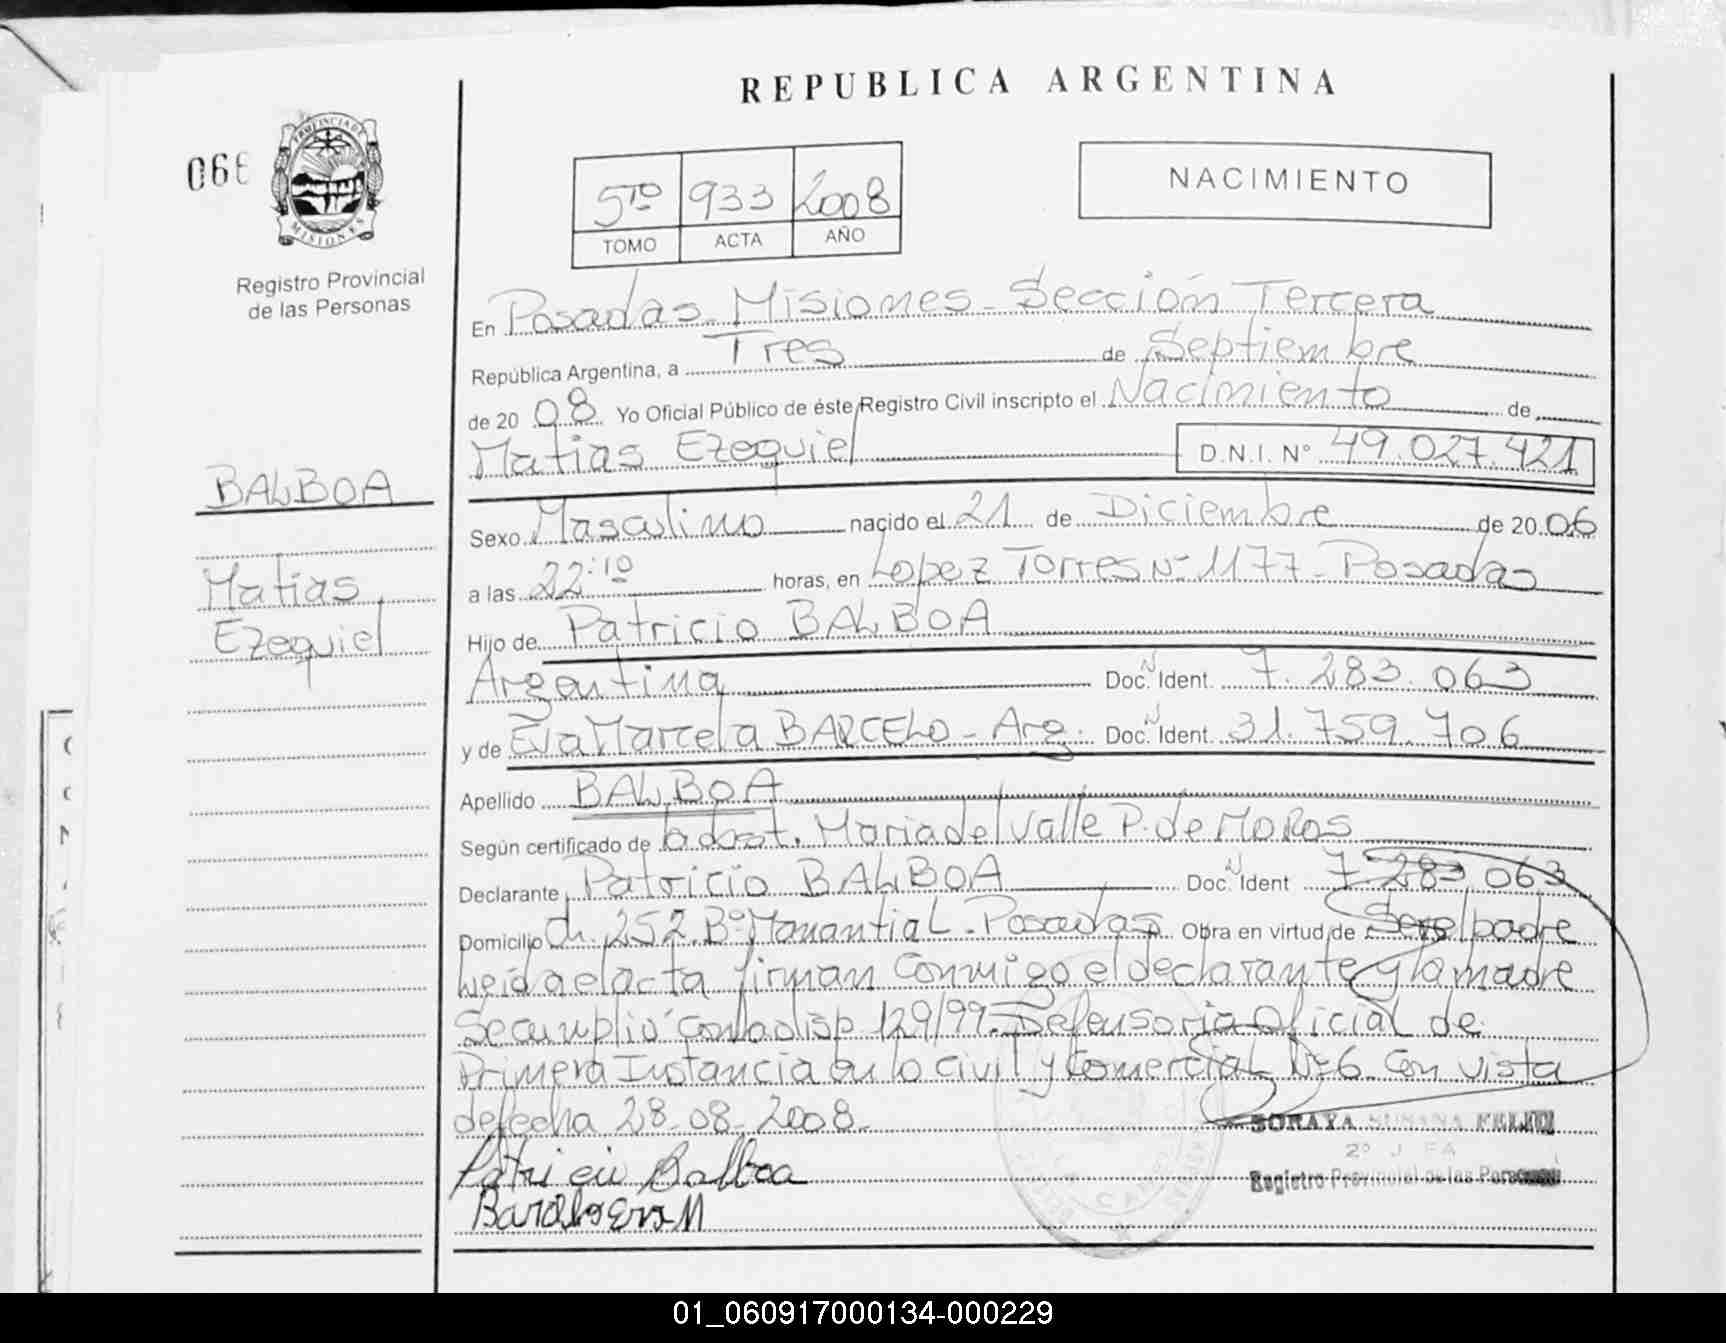 REPUBLICA ARGENTINA
066
PROVINCIA DE
MISIONES
Registro Provincial
de las Personas
5TO 933 2008
TOMO ACTA AÑO
NACIMIENTO
En Posadas - Misiones - Sección Tercera
República Argentina, a Tres de Septiembre
de 20 08 Yo Oficial Público de éste Registro Civil inscripto el Nacimiento de
Matias Ezequiel D.N.I. Nº 49.027.421
BALBOA
Matias
Ezequiel
Sexo Masculino nacido el 21 de Diciembre de 20 06
a las 22:10 horas, en Lopez Torres Nº 1177 - Posadas
Hijo de Patricio BALBOA
Argentina Doc. N Ident. 7.283.063
y de Eva Marcela BARCELO - Arg. Doc. N Ident. 31.759.706
Apellido BALBOA
Según certificado de obst. Maria del Valle P. de MOROS
Declarante Patricio BALBOA Doc. N Ident 7.283.063
Domicilio Ch. 252 Bº Manantial - Posadas Obra en virtud de Ser el padre
Leida el acta firman conmigo el declarante y la madre
Se cumplio con la disp 129/99 - Defensoria Oficial de
Primera Instancia en lo Civil y Comercial Nº 6 Con vista
de fecha 28-08-2008-
Patricio Balboa
SORAYA SUSANA
Registro Provincial de las Personas
01_060917000134-000229